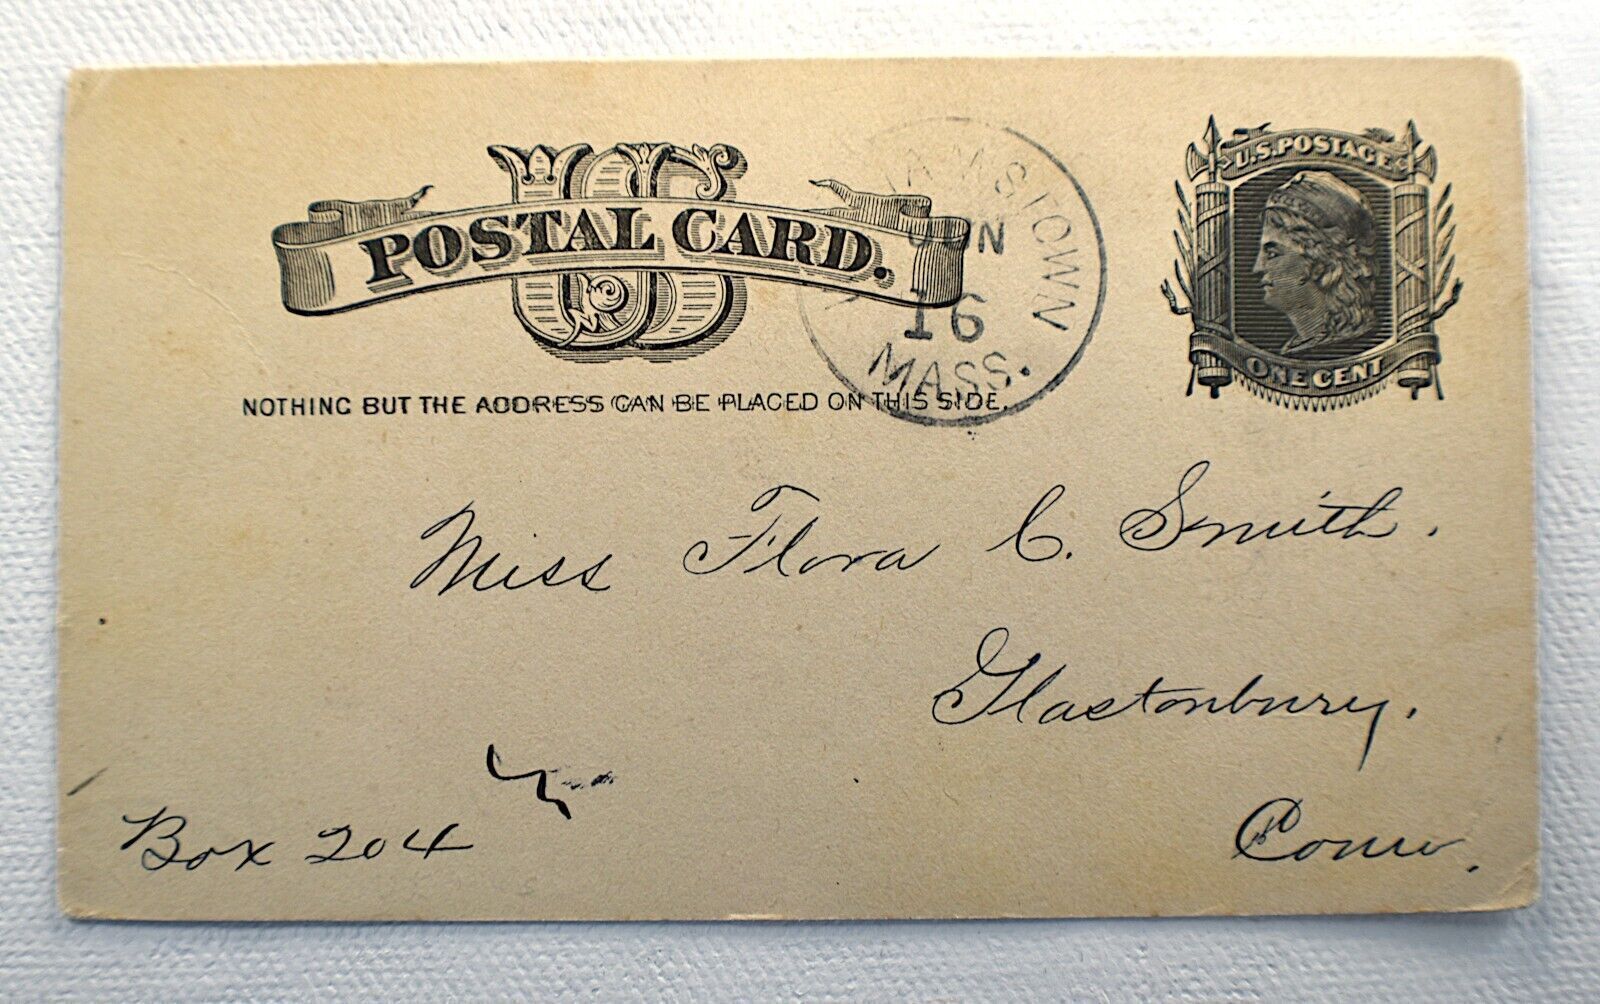 US
POSTAL CARD.
U.S. POSTAGE
ONE CENT
JUN
16
MASS.
NOTHING BUT THE ADDRESS CAN BE PLACED ON THIS SIDE.
Miss Flora C. Smith.
Glastonbury.
Conn.
Box 204